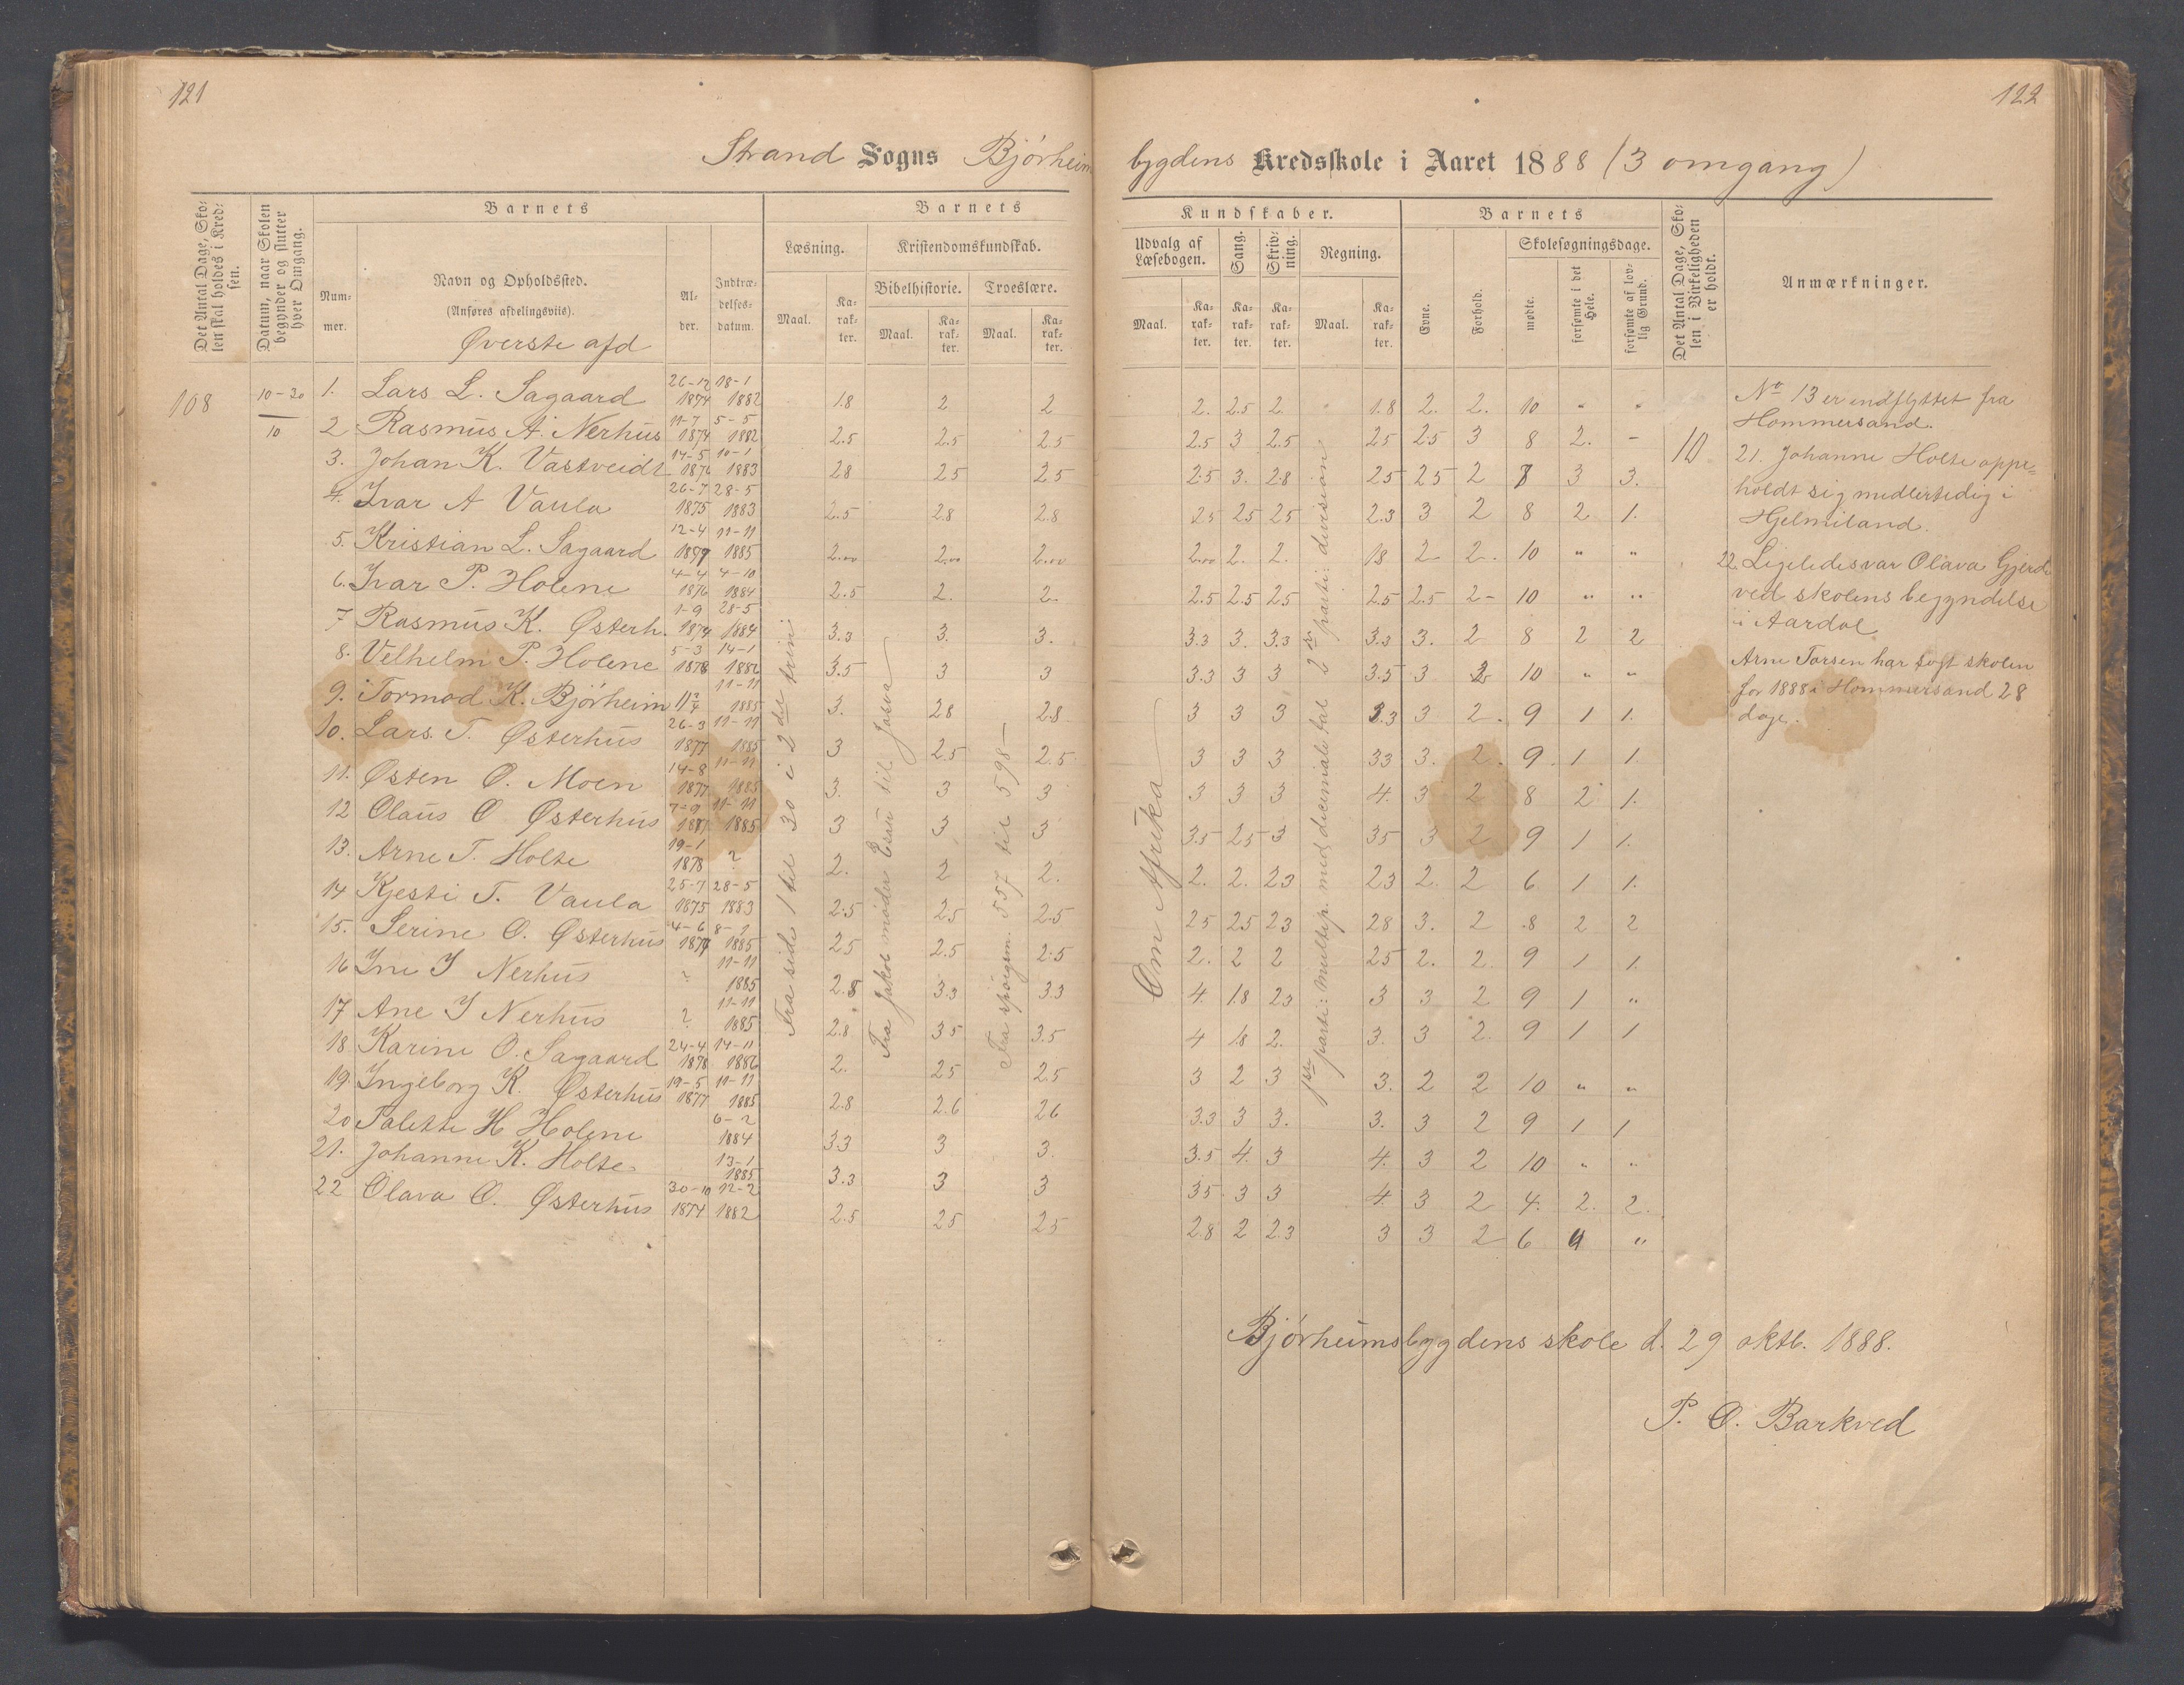 121
Strand Sogns Bjørheim
Det Antal Dage, Sko-
len skal holdes i Kred-
sen.
Datum, naar Skolen
begynder og slutter
hver Omgang.
Barnets
Num-
mer.
Navn og Opholdssted.
(Anføres afdelingsviis).
Øverste afd
Al-
der.
Indtræ-
delses-
datum.
Barnets
Læsning.
Kristendomskundskab.
Bibelhistorie. Troeslære.
Maal. Ka-rak-ter. Maal. Ka-rak-ter. Maal. Ka-rak-ter.
108 10-20/10
1. Lars L. Sagaard 26-12 1874 18-1 1882 1.8 2 2
2 Rasmus A. Nerhus 11-7 1874 5-5 1882 2.5 2.5 2.5
3. Johan K. Vastveidt 14-5 1876 10-1 1883 2.8 2.5 2.5
4. Ivar A Vaula 26-7 1875 28-5 1883 2.5 2.8 2.8
5. Kristian L. Sagaard 12-4 1877 11-11 1885 2.00 2.00 2.00
6. Ivar P. Holene 4-4 1876 4-10 1884 2.5 2. 2.
7 Rasmus K. Østerh. 1-9 1874 28-5 1884 3.3 3. 3.
8. Velhelm P. Holene 5-3 1878 14-1 1886 3.5 3 3
9. Tormod K. Bjørheim 11-11 1885 3. 2.8 2.8
10. Lars T. Østerhus 26-3 1877 11-11 1885 3 2.5 2.5
11. Østen O. Moen 14-8 1877 11-11 1885 3. 3 3
12 Olaus O Østerhus 7-9 1877 11-11 1885 3 3 3
13. Arne T. Holte 19-1 1878 ? 2. 2 2.
14 Kjesti T. Vaula 25-7 1875 28-5 1883 2.5 2.5 2.5
15. Serine O. Østerhus 4-6 1874 8-? 1885 2.5 2.5 2.5
16 Ine I Nerhus ? 11-11 1885 2.8 3.3 3.3
17 Ane I Nerhus ? 11-11 1885 2.8 3.5 3.5
18. Karine O. Sagaard 24-4 1878 14-11 1886 2. 2.5 2.5
19. Ingeborg K. Østerhus 19-5 1877 11-11 1885 2.8 2.6 2.6
20 Talette H Holene 6-? 1884 3.3 3 3.
21. Johanne K. Holte 13-1 1885 3.3 3 3
22 Olava O. Østerhus 30-10 1874 12-2 1882 2.5 2.5 2.5
Fra side 1 til 30 i 2det trin
Fra Jakob møder Esau til Josva
Fra spørgsm. 557 til 598
122
bygdens Kredsskole i Aaret 1888 (3 omgang)
Kundskaber.
Udvalg af
Læsebogen.
Sang.
Skriv-
ning.
Regning.
Maal. Ka-rak-ter. Ka-rak-ter. Ka-rak-ter. Maal. Ka-rak-ter.
Barnets
Evne.
Forhold.
Skolesøgningsdage.
mødte.
forsømte i det
Hele.
forsømte af lov-
lig Grund.
Det Antal Dage, Sko-
len i Virkeligheden
er holdt.
Anmærkninger.
2. 2.5 2. 1.8 2. 2. 10 " "
2.5 3 2.5 2.5 2.5 3 8 2. -
2.5 3. 2.8 2.5 2.5 2 7 3 3.
2.5 2.5 2.5 2.3 3 2 8 2 1.
2.00 2. 2. 1.8 2 2. 10 " "
2.5 2.5 2.5 2.5 2.5 2- 10 " "
3.3 3. 3.3 3.3 3. 2 8 2 2
3.3 3 3 3.5 3 2 10 " "
3 3 3 3.3 3 2. 9 1 1.
3 3 3 3.3 3. 2. 9. 1 1.
3 3 3 4. 3 2 8 2 1.
3.5 2.5 3 3.5 3 2 9 1 1.
2. 2. 2.3 2.3 2. 2 6 1 1.
2.5 2.5 2.3 2.8 3. 2 8 2 2
2. 2 2 2.5 2. 2 9 1 1
4. 1.8 2.3 3 3 2 9 1 "
4 1.8 2. 3. 3 2. 9 1 1
3 2 3 3. 2 2 10 " "
3.3 3 3. 3. 3 2 9 1 1
3.5 4. 3 4. 3 2 10 " "
3.5 3 3 4. 3 2 4. 2. 2.
2.8 2 2.3 3 3 2 6 4 "
Om Afrika
1ste parti: multip. med decimale tal 2det parti: division
10
No 13 er indflyttet fra
Hommersand.
21. Johanne Holte oppe=
holdt sig midlertidig i
Hjelmiland.
22. Ligeledes var Olava Gjerde
ved skolens begyndelse
i Aardal.
Arne Torsen har søgt skolen
for 1888 i Hommersand 28
dage.
Bjørheimsbygdens skole d. 29 oktb. 1888.
P. O. Barkved